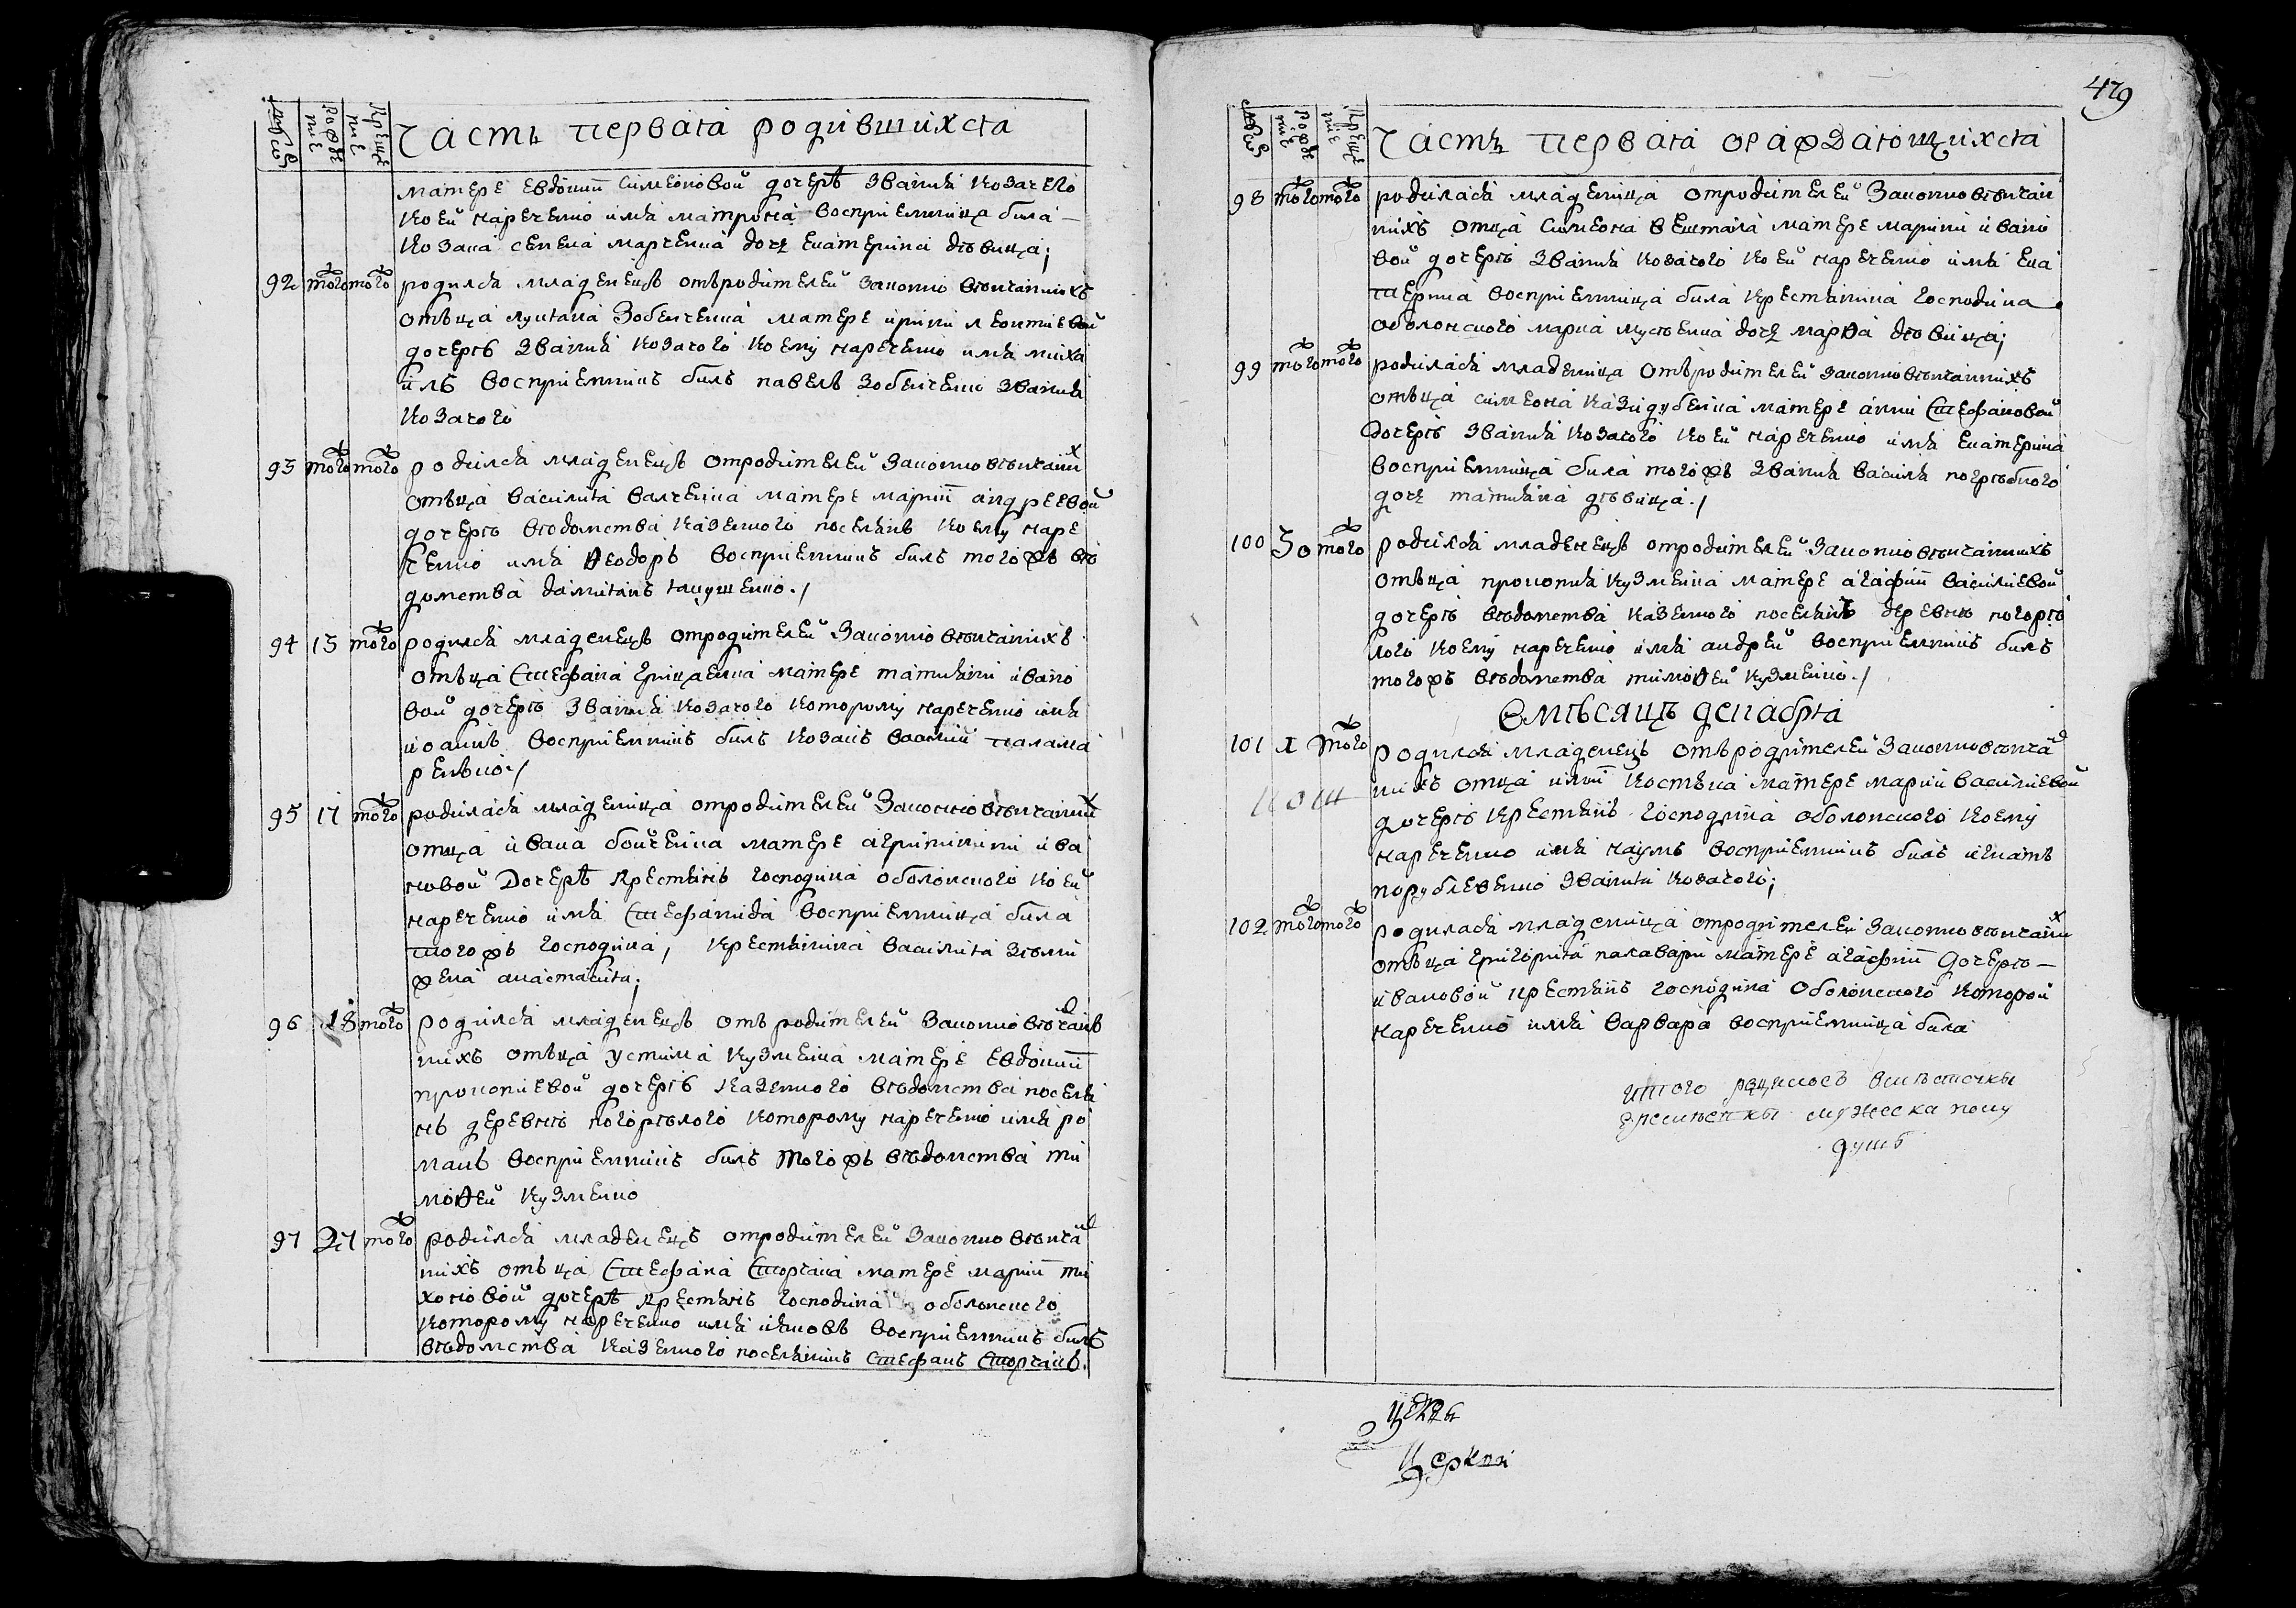 Рожде
ние
Креще
ние
Часть первая родившихся
матере Евдокии Симеоновой дочерѣ званiя козачего
коей наречено имя Матрона восприемница била
козака Семена Марченка дочь Екатерина дѣвица;
92 того того родился младенецъ отъ родителей законно вѣнчанних
отъца Лукiана Зобенченка матере Ирини Леонтиевой
дочерѣ званiя козачого коему наречено имя Миха
илъ восприемникъ билъ Павелъ Зобенченко званiя
козачого
93 того того родился младенецъ от родителей законно вѣнчанних
отъца Василия Валченка матере Марии Андреевой
дочерѣ вѣдомства казенного поселянъ коему наре
ченно имя Ѳеодоръ восприемникъ билъ тогожъ вѣ
домства Дамиянъ Якущенко./
94 13 того родился младенецъ от родителей законно вѣнчаннихъ
отъца Стефана Грицаенка матере Татияни Ивано
вой дочерѣ званiя козачого которому наречено имя
Иоаннъ восприемникъ билъ козакъ Василий Палама
ренъко./
95 17 того родилася младеница от родителей законно вѣнчанних
отца Ивана Бойченка матере Агрипини Ива
новой дочерѣ крестянъ господина Оболонского коей
наречено имя Стефанида восприемница била
тогожъ господина, крестянина Василия
жена Анастасия;
96 18 того родился младенецъ отъ родителей законно вѣнчан
нихъ отъца Устима Кузменка матере Евдокии
Прокопиевой дочерѣ казенного вѣдомства поселя
нъ деревнѣ Погорѣлого которому наречено имя Ро
манъ восприемникъ билъ тогожъ вѣдомства Ти
моѲей Кузменко
97 27 того родился младенецъ от родителей законно вѣнчан
нихъ отъца Стефана Сторчака матере Марии Ти
хоновой дочерѣ крестянъ господина Оболонского
которому наречено имя Iяковъ восприемникъ билъ
вѣдомства казенного поселянинъ Стефанъ Сторчакъ.
479
Рожде
ние
Креще
ние
Часть первая о раждающихся
98 того того родилася младеница от родителей законно вѣнчан
нихъ отца Симеона Вештала матере Марини Ивано
вой дочерѣ званiя козачого коей наречено имя Ека
терина восприемница била крестянина господина
Оболонского Марка Мусѣенка дочь МарѲа дѣвица;
99 того того родилася младеница отъ родителей законно вѣнчаннихъ
отъца Симеона Казидубенка матере Анни Стефановой
дочерѣ званiя козачого коей наречено имя Екатерина
восприемница била тогожъ званiя Василя Погрѣбного
дочь Татияна дѣвица./
100 30 того родился младенецъ от родителей законно вѣнчаннихъ
отъца Прокопия Кузменка матере Агафии Василиевой
дочерѣ вѣдомства казенного поселянъ деревнѣ Погорѣ
лого коему наречено имя Андрей восприемникъ билъ
тогожъ вѣдомства ТимоѲей Кузменко./
Вмѣсяцѣ декабря
101 1 того родился младенецъ отъ родителей законно вѣнчан
нихъ отца Илии Костѣка матере Марии Василиевой
дочерѣ крестянъ господина Оболонского коему
наречено имя Наумъ восприемникъ билъ Игнатъ
Порублевенко званiя козачого;
102 того того родилася младеница от родителей законно вѣнчанних
отъца Григория Палавари матере Агафии дочерѣ
Ивановой крестянъ господина Оболонского которой
наречено имя Варвара восприемница била
итого
мужеска полу
душъ
Церкви